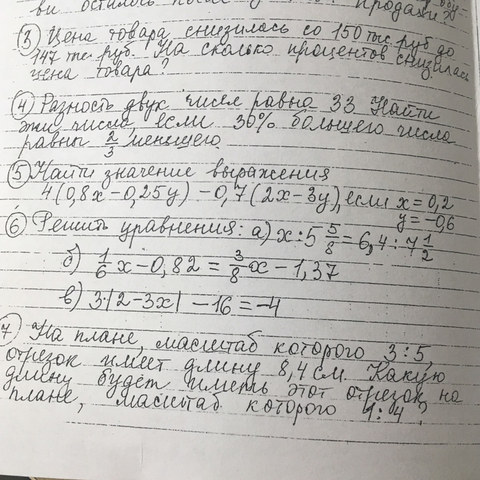 ви осталось после продажи
③ Цена товара снизилась со 150 тыс руб до
147 тыс. руб. На сколько процентов снизилась
цена товара?
④ Разность двух чисел равна 33. Найти
эти числа, если 30% большего числа
равны 2/3 меньшего.
⑤ Найти значение выражения
4(0,8x-0,25y) -0,7(2x-3y), если x=0,2
y=-0,6
⑥ Решить уравнения: а) x:5 5/8 = 6,4:7 1/2
б) 1/6 x - 0,82 = 3/8 x - 1,37
в) 3·|2-3x| -16 = -4
⑦ На плане, масштаб которого 3:5,
отрезок имеет длину 8,4 см. Какую
длину будет иметь этот отрезок на
плане, масштаб которого 1:4?